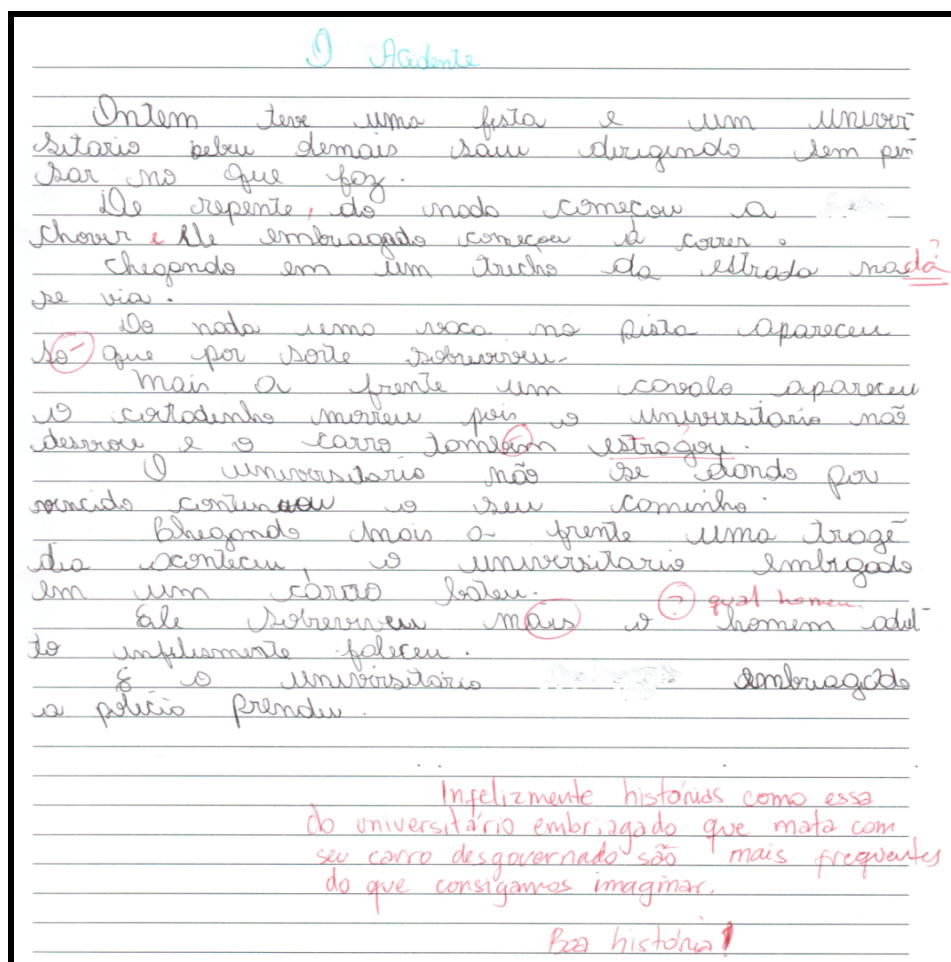 O Acidente
Ontem teve uma festa e um univer
sitario bebeu demais saiu dirigindo sem pen
sar no que fez.
De repente, do nada começou a
chover e ele embriagado começou a correr.
Chegando em um trecho da estrada nada
se via.
Do nada uma vaca na pista apareceu
so que por sorte sobreviveu.
Mais a frente um cavalo apareceu
o coitadinho morreu pois o universitario não
desviou e o carro também estragou.
O universitario não se dando por
vencido continuou o seu caminho.
Chegando mais a frente uma tragé
dia aconteceu, o universitario embrigado
em um carro bateu.
? qual homem
Ele sobreviveu mais o homem adul
to infelismente faleceu.
E o universitário embriagado
a policia prendeu.
Infelizmente histórias como essa
do universitário embriagado que mata com
seu carro desgovernado são mais frequentes
do que consigamos imaginar.
Boa história!